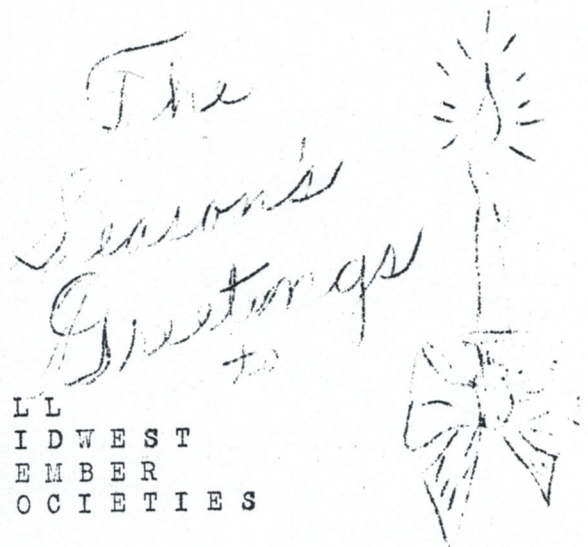 The
Season's
Greetings
to
LL
IDWEST
EMBER
OCIETIES